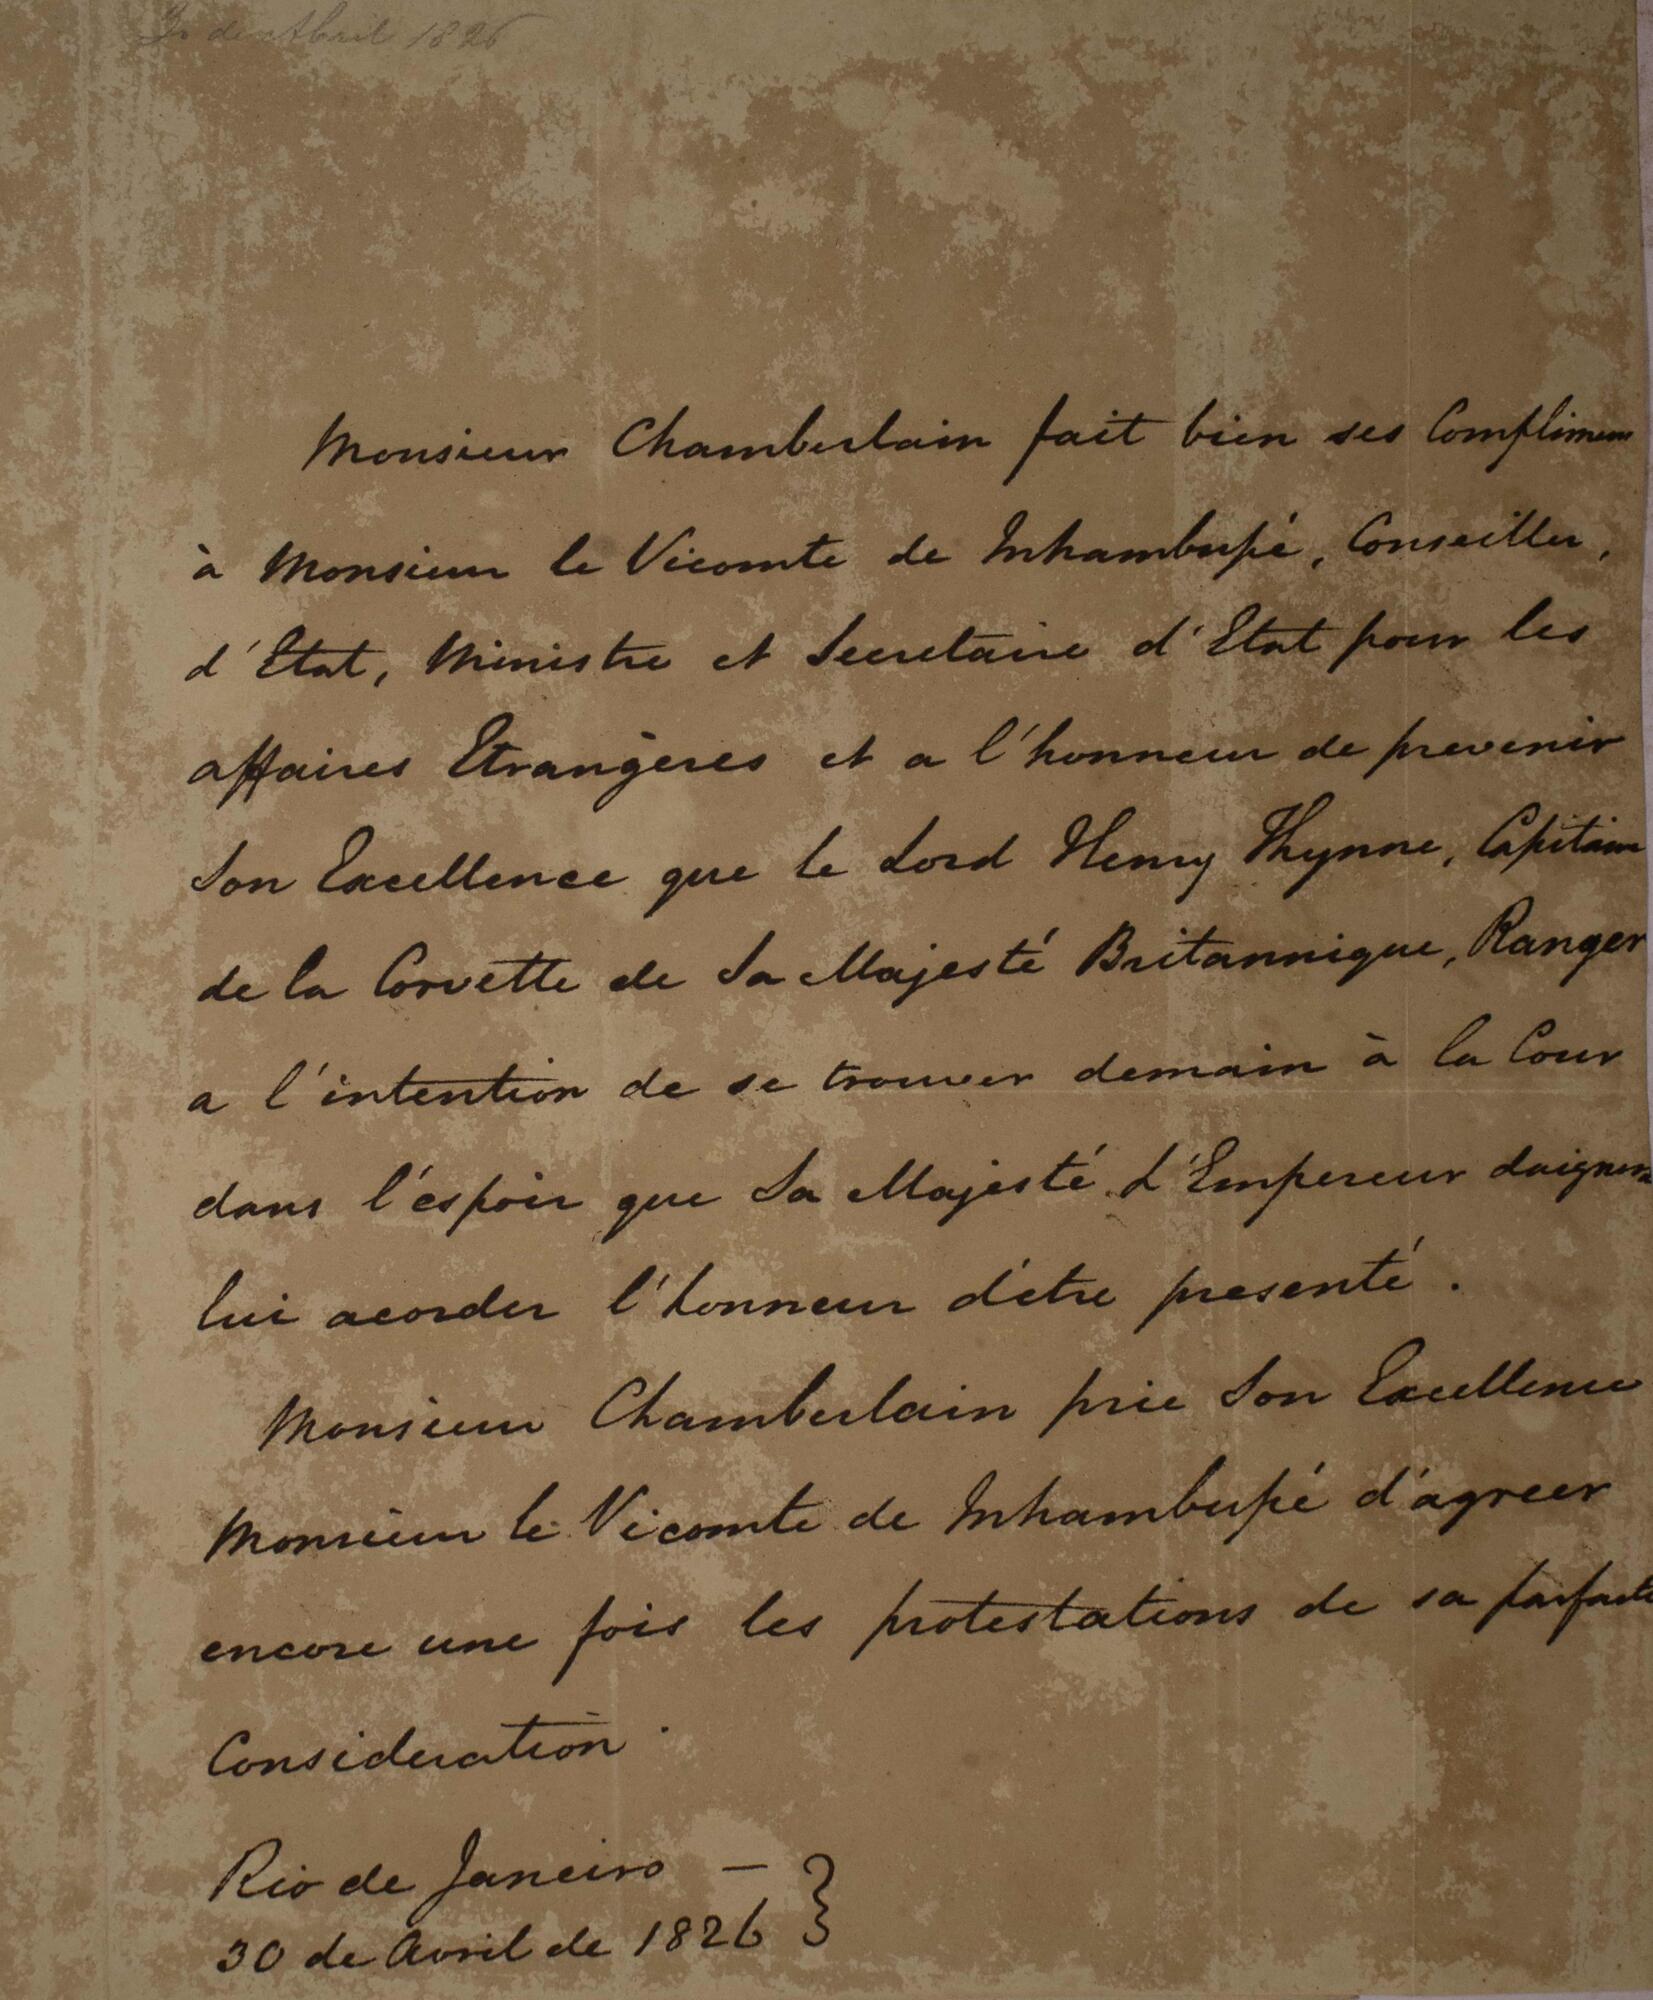 30 de Abril 1826
Monsieur Chamberlain fait bien ses Complimens
à Monsieur le Vicomte de Inhambupé, Conseiller,
d'Etat, Ministre et Secretaire d'Etat pour les
affaires Etrangères et a l'honneur de prevenir
Son Excellence que le Lord Henry Thynne, Capitaine
de la Corvette de Sa Majesté Britannique, Ranger
a l'intention de se trouver demain à la Cour
dans l'éspoir que Sa Majesté L'Empereur daignera
lui acorder l'honneur d'être presenté.
Monsieur Chamberlain prie Son Excellence
Monsieur le Vicomte de Inhambupé d'agreer
encore une fois les protestations de sa parfaite
Consideration.
Rio de Janeiro —
30 de Avril de 1826 }